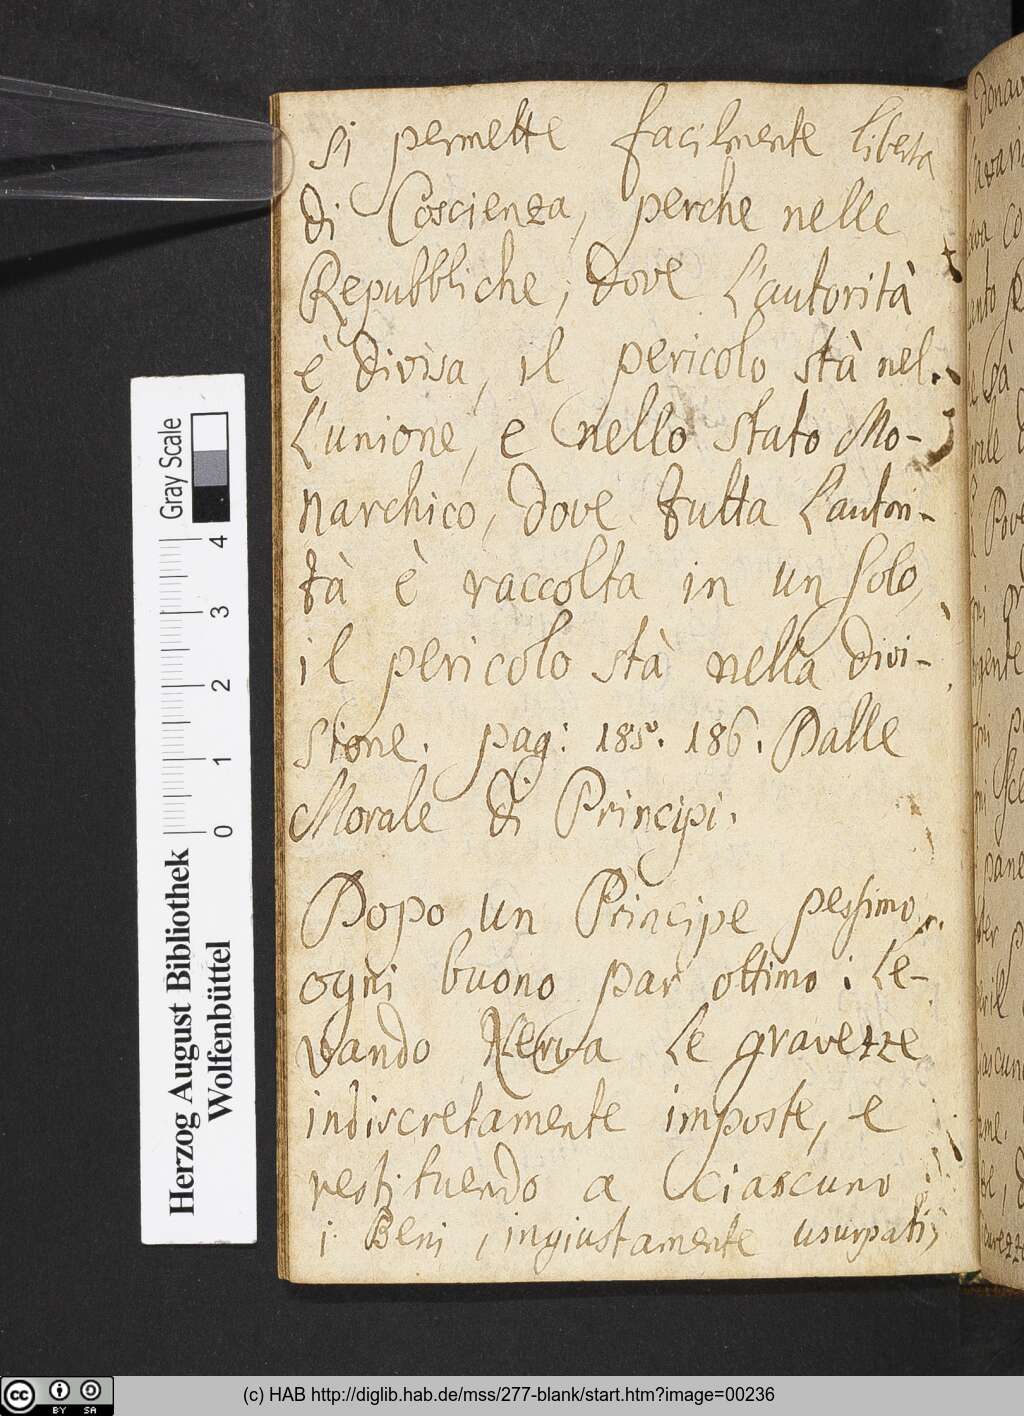 si permette facilmente liberta
di Coscienza, perche nelle
Repubbliche, dove L'autorità
è divisa, il pericolo stà nel
L'unione, e nello stato Mo-
narchico, dove tutta L'autori-
tà è raccolta in un solo,
il pericolo stà nella divi-
sione. pag: 185. 186. Dalle
Morale di Principi.
Dopo un Principe pessimo,
ogni buono par ottimo: Le-
vando Nerva le gravezze
indiscretamente imposte, e
restituendo a ciascuno
i Beni, ingiustamente usurpati,
Gray Scale
0 1 2 3 4
Herzog August Bibliothek
Wolfenbüttel
cc BY SA
(c) HAB http://diglib.hab.de/mss/277-blank/start.htm?image=00236